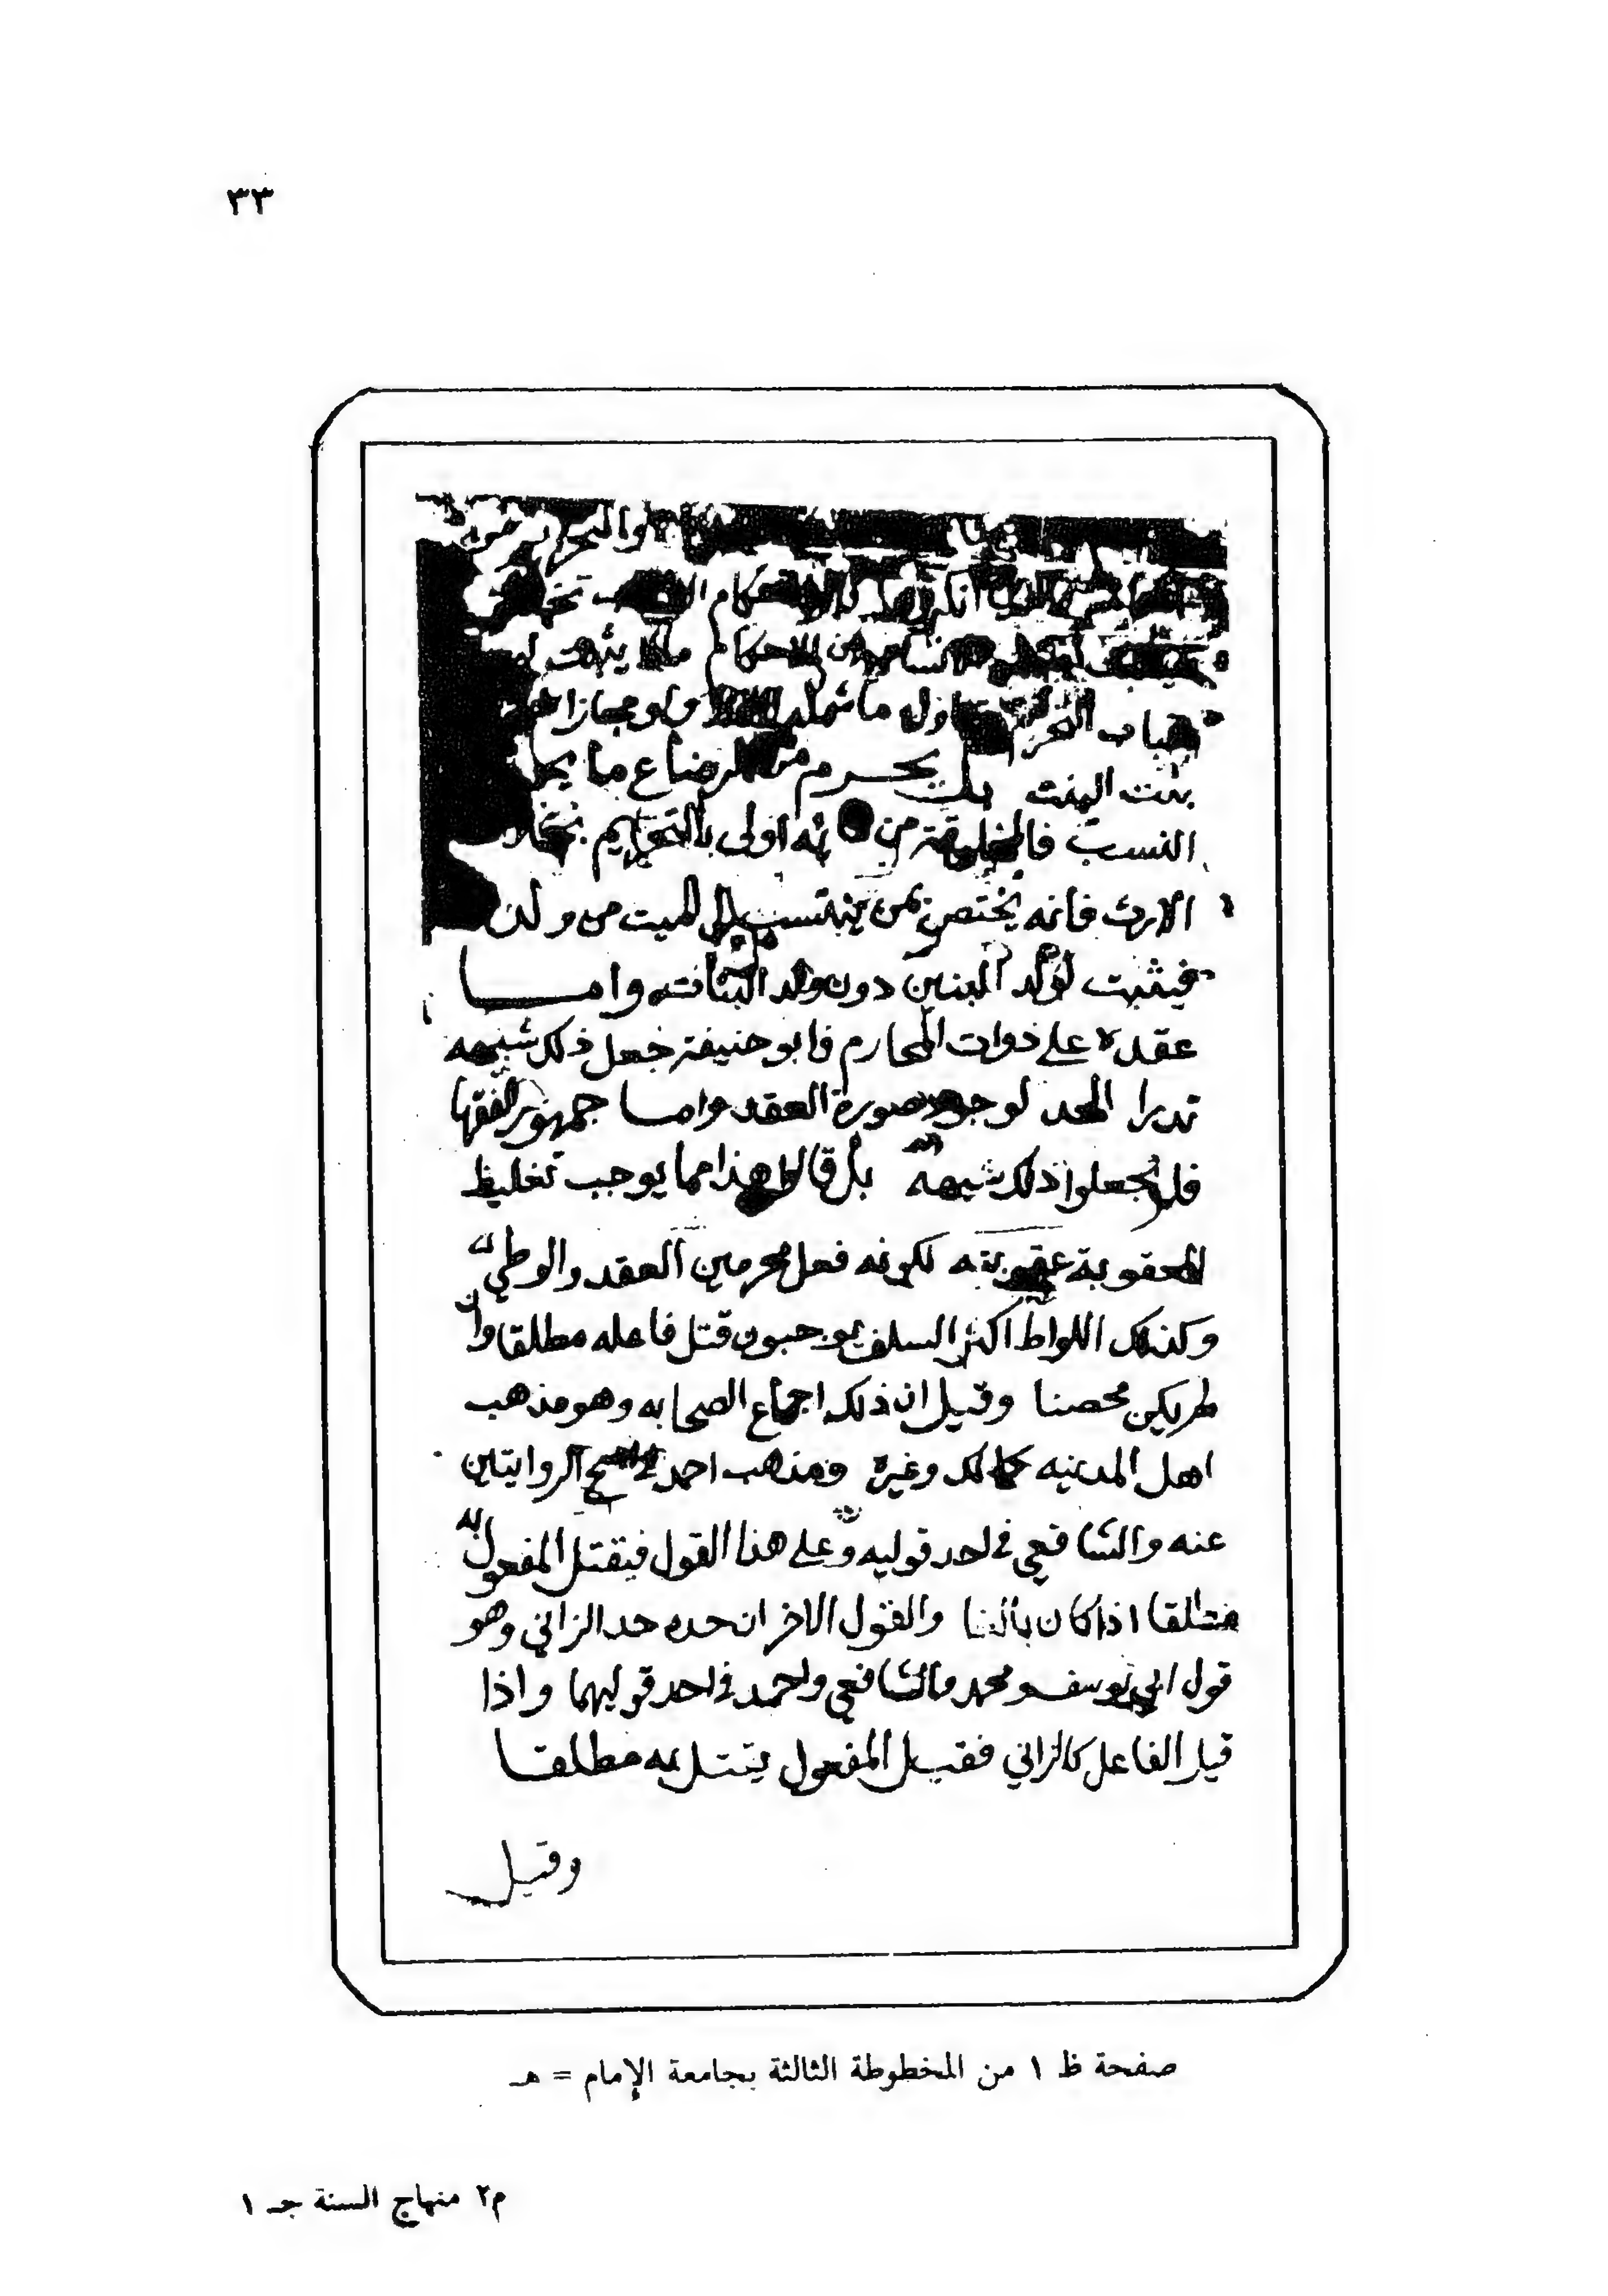 ٣٣
والتحريم
انكروها الاحكام
من الاحكام ما لا يثبت
باب التحريم ما شمله او مجازا
بنت البنت بل يحرم من الرضاع ما يحرم
النسب فالمخلوقة من اولى بالتحريم بخلاف
الارث فانه يختص بمن ينتسب الى الميت من ولده
فيثبت لولد البنين دون ولد البنات واما
عقده على ذوات المحارم فابو حنيفة جعل ذلك شبهه
تدرا الحد لوجود صورة العقد واما جمهور الفقها
فلم يجعلوا ذلك شبهة بل قالوا هذا مما يوجب تغليظ
العقوبة لكونه فعل محرمين العقد والوطي
وكذلك اللواط اكثر السلف يوجبون قتل فاعله مطلقا وان
لم يكن محصنا وقيل ان ذلك اجماع الصحابه وهو مذهب
اهل المدينه كمالك وغيره ومذهب احمد في اصح الروايتين
عنه والشافعي في احد قوليه وعلى هذا القول فيقتل المفعول به
مطلقا اذا كان بالغا والقول الاخر ان حده حد الزاني وهو
قول ابي يوسف ومحمد والشافعي واحمد في احد قوليهما واذا
قيل الفاعل كالزاني فقيل المفعول يقتل به مطلقا
وقيل
صفحة ظ ١ من المخطوطة الثالثة بجامعة الإمام = هـ
م٢ منهاج السنة جـ ١